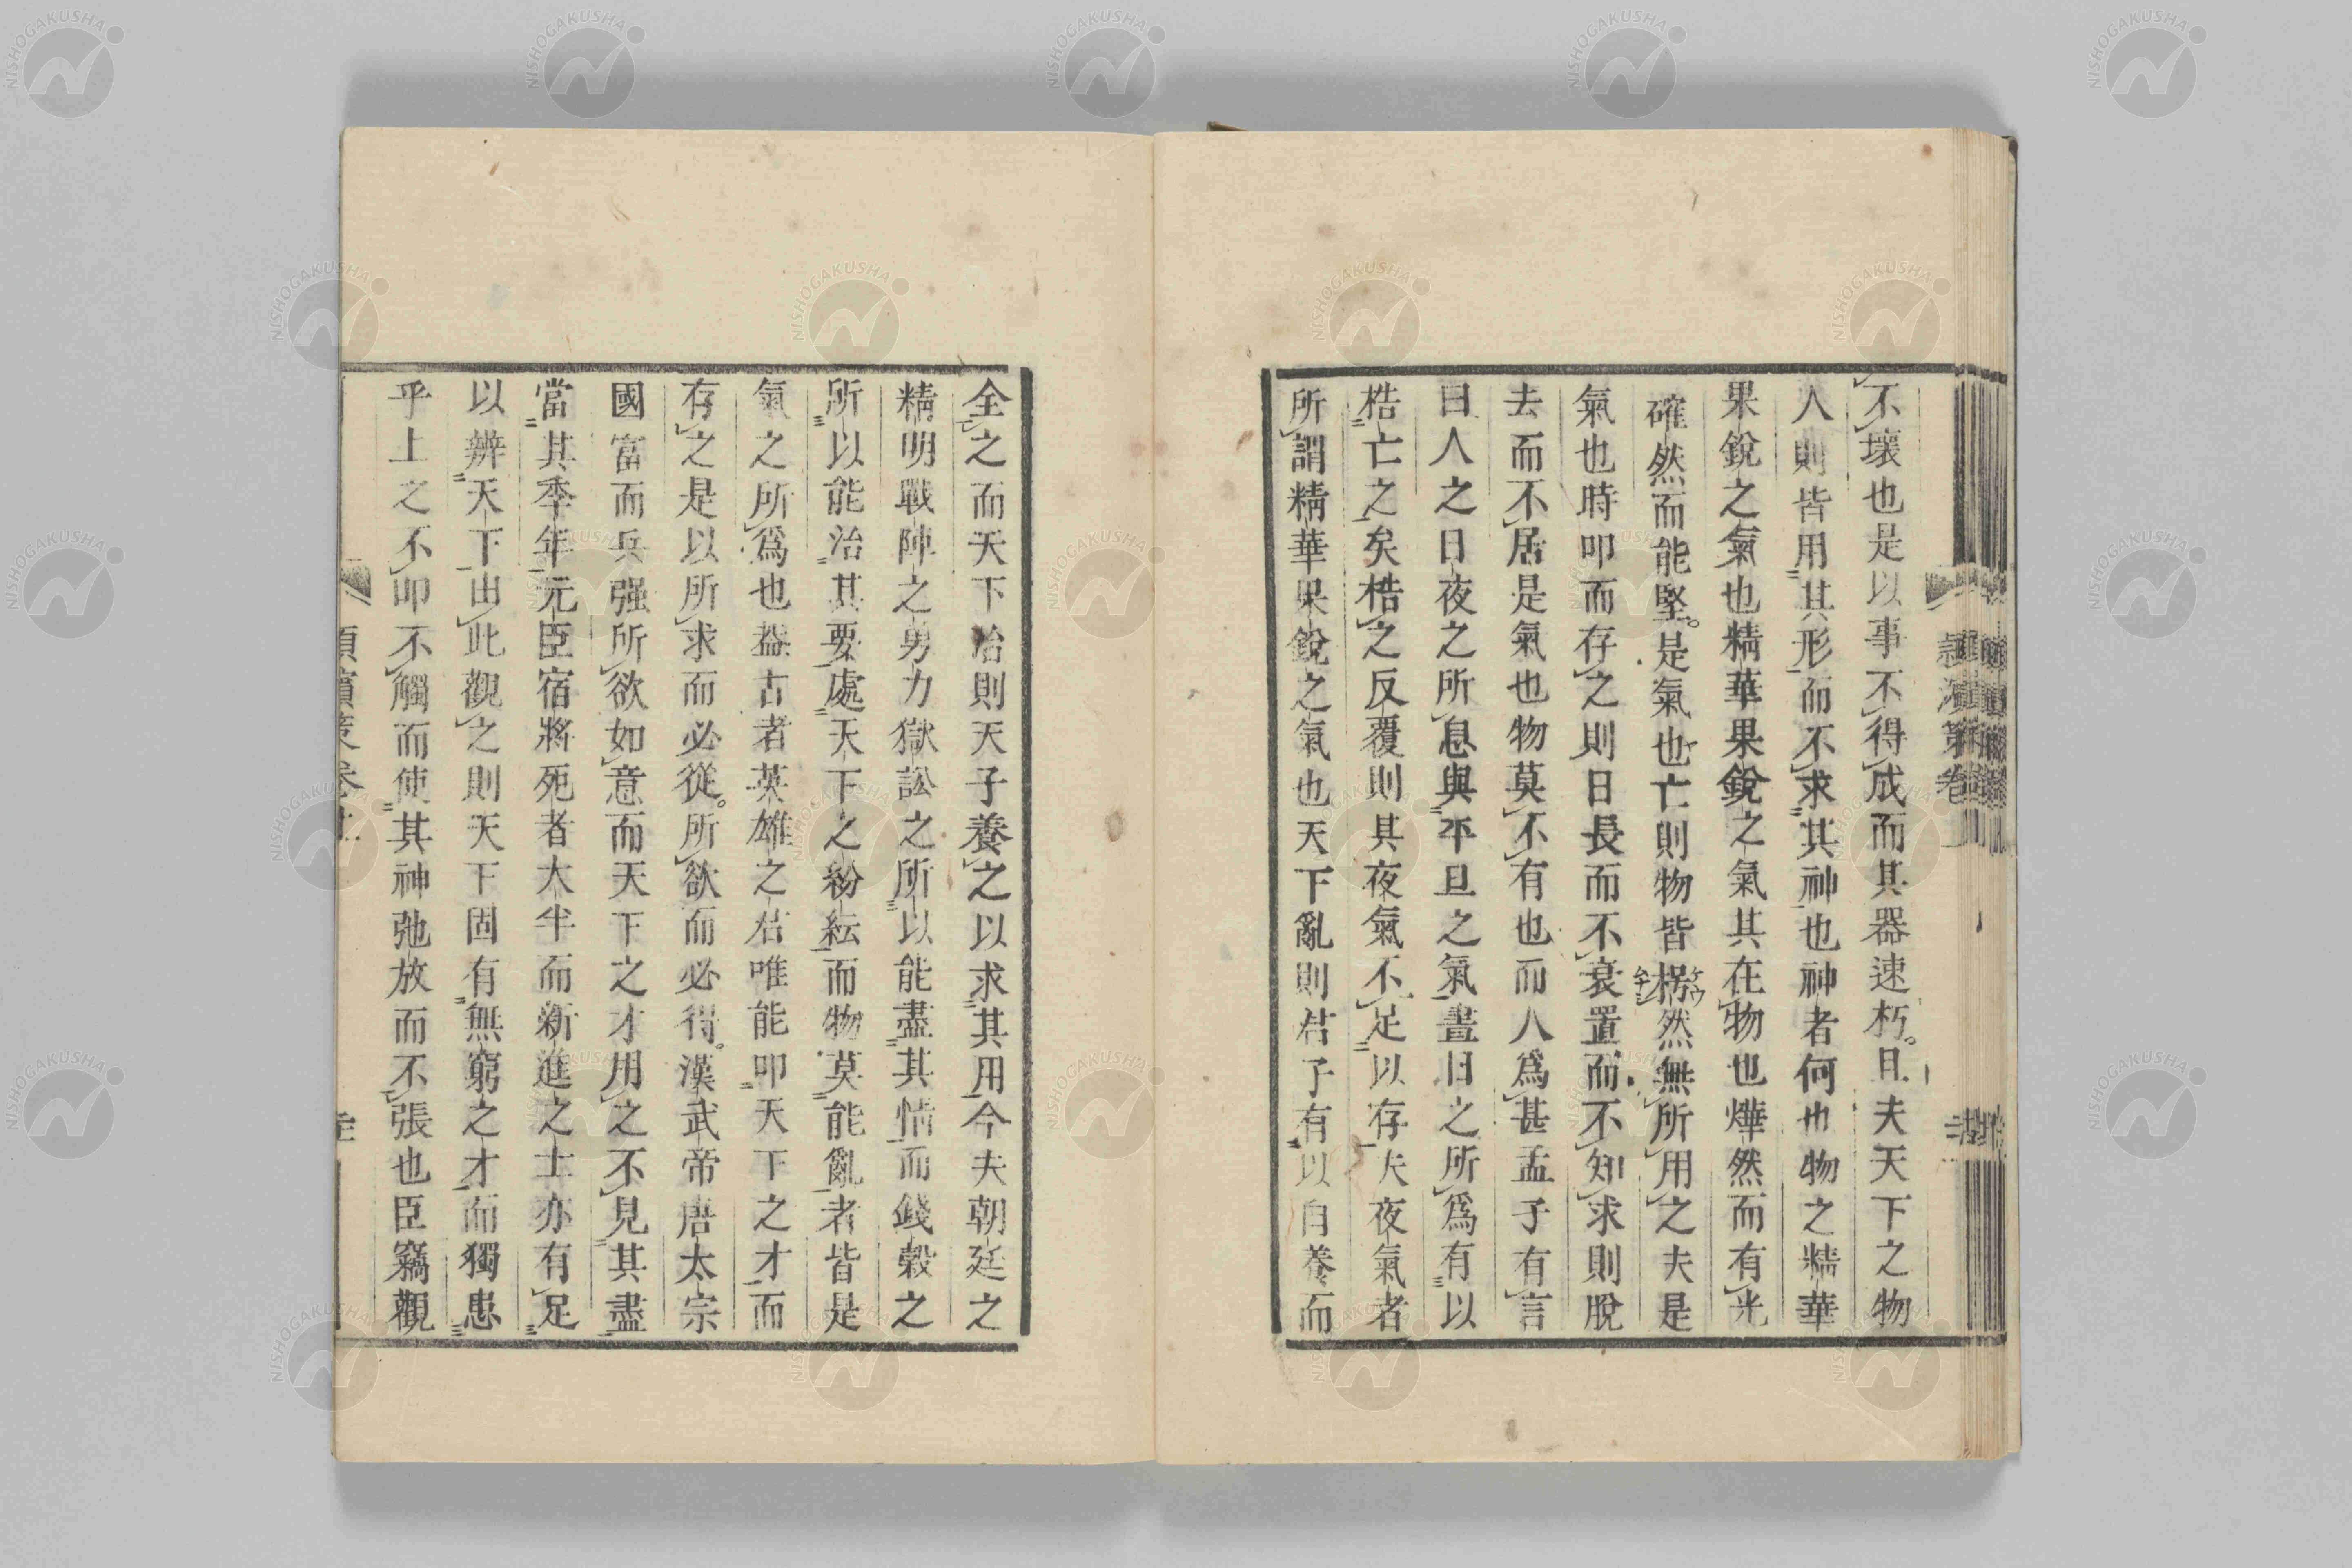 不壞也是以事不得成而其器速朽。且夫天下之物
人則皆用其形而不求其神也神者何也物之精華
果銳之氣也精華果銳之氣其在物也燁然而有光
確然而能堅。是氣也亡則物皆枵然無所用之夫是
氣也時叩而存之則日長而不衰置而不知求則脫
去而不居是氣也物莫不有也而人爲甚孟子有言
曰人之日夜之所息與平旦之氣晝日之所爲有以
梏亡之矣梏之反覆則其夜氣不足以存夫夜氣者
所謂精華果銳之氣也天下亂則君子有以自養而
全之而天下治則天子養之以求其用今夫朝廷之
精明戰陣之勇力獄訟之所以能盡其情而錢穀之
所以能治其要處天下之紛紜而物莫能亂者皆是
氣之所爲也蓋古者英雄之君唯能叩天下之才而
存之是以所求而必從。所欲而必得。漢武帝唐太宗
國富而兵强所欲如意而天下之才用之不見其盡
當其季年元臣宿將死者大半而新進之士亦有足
以辨天下由此觀之則天下固有無窮之才而獨患
乎上之不叩不觸而使其神弛放而不張也臣竊觀
NISHOGAKUSHA